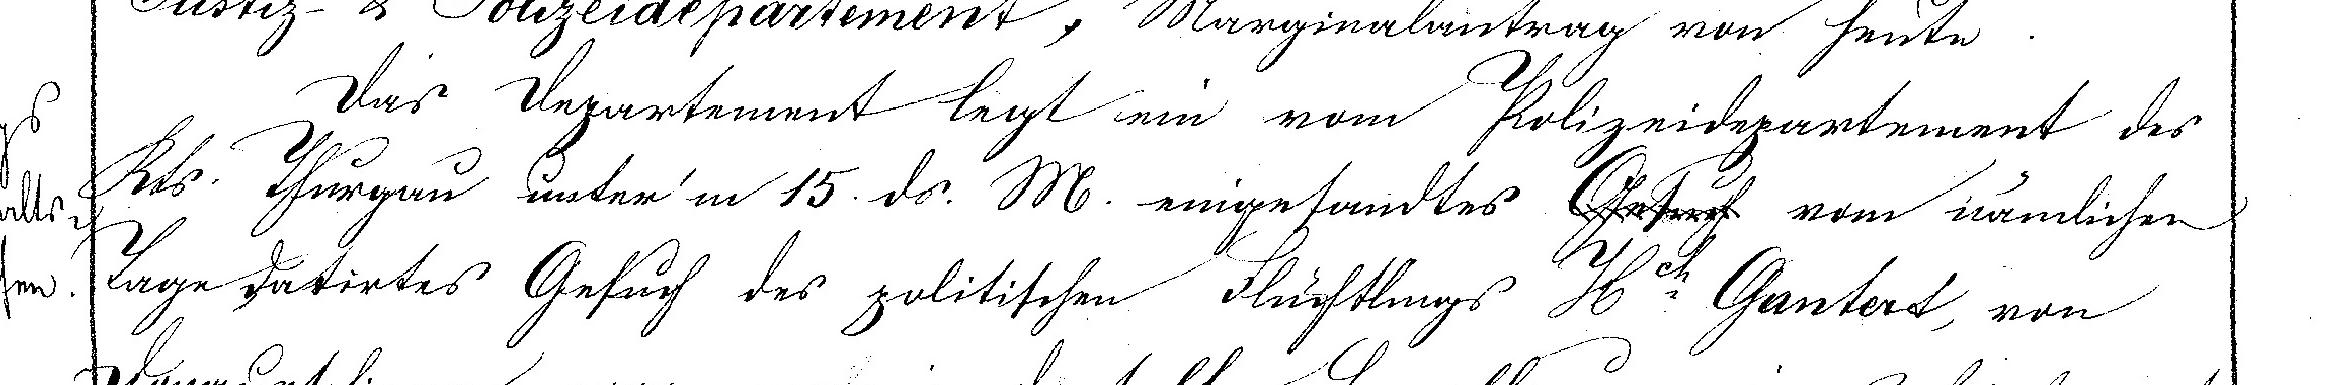 Justiz- & Polizeidepartement, Marginalantrag von heute.
Das Departement legt ein vom Polizeidepartement des
Kts. Thurgau unter'm 15. ds. M. eingesandtes Gesuch vom nämlichen
Tage datirtes Gesuch des politischen Flüchtlings Hch. Gantert, von